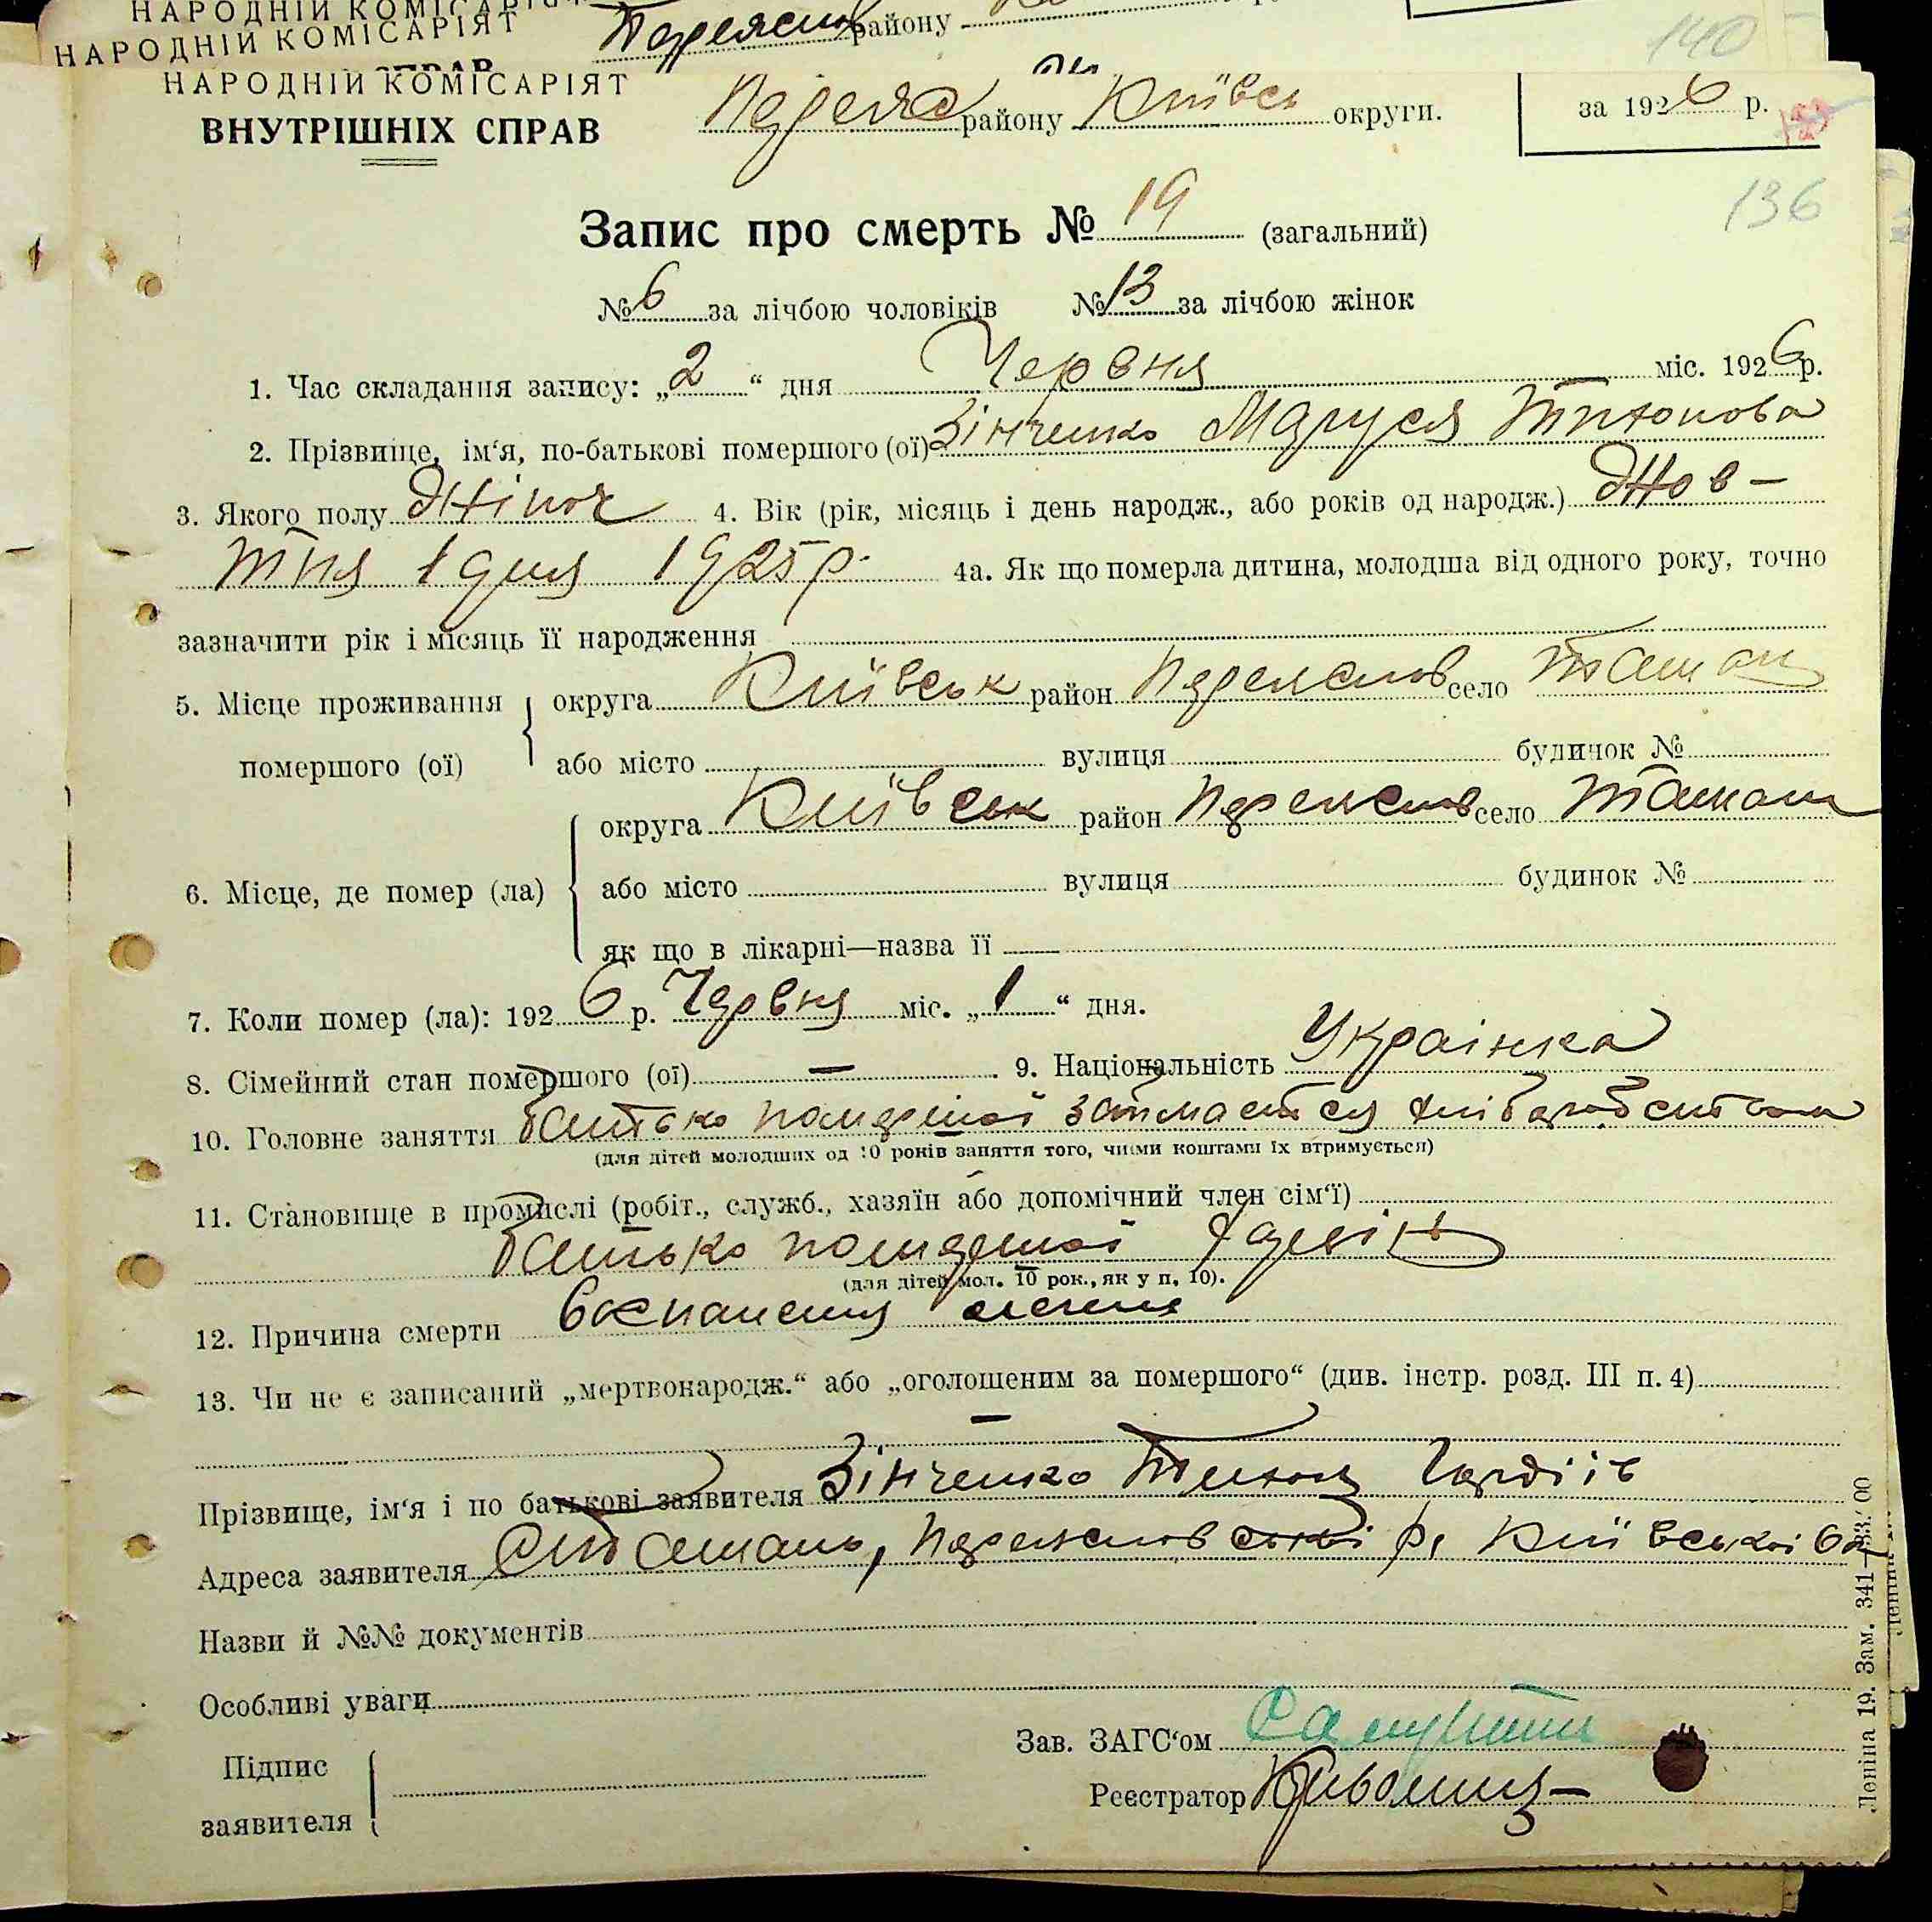 НАРОДНІЙ КОМІСАРІЯТ
НАРОДНІЙ КОМІСАРІЯТ
району
140
НАРОДНІЙ КОМІСАРІЯТ
ВНУТРІШНІХ СПРАВ
Переяс району Київсь округи.
за 1926 р.
136
Запис про смерть № 19 (загальний)
№ 6 за лічбою чоловіків № 13 за лічбою жінок
1. Час складання запису: „2“ дня Червня міс. 1926 р.
2. Прізвище, ім‘я, по-батькові помершого (ої) Зінченко Маруся Тихонова
3. Якого полу Жіноч 4. Вік (рік, місяць і день народж., або років од народж.) Жов-
тня 1 дня 1925 р. 4а. Як що померла дитина, молодша від одного року, точно
зазначити рік і місяць її народження
5. Місце проживання помершого (ої) округа Київськ район Переяслов село Ташань
або місто вулиця будинок №
6. Місце, де помер (ла) округа Київськ район Переяслов село Ташань
або місто вулиця будинок №
як що в лікарні—назва її
7. Коли помер (ла): 1926 р. Червня міс. „1“ дня.
8. Сімейний стан помершого (ої) — 9. Національність Українка
10. Головне заняття батько помершої займається хліборобством
(для дітей молодших од 10 років заняття того, чиїми коштами їх втримується)
11. Становище в промислі (робіт., служб., хазяїн або допомічний член сім‘ї)
батько помершої
(для дітей мол. 10 рок., як у п. 10).
12. Причина смерти воспаления
13. Чи не є записаний „мертвонародж.“ або „оголошеним за помершого“ (див. інстр. розд. III п. 4)
—
Прізвище, ім‘я і по батькові заявителя Зінченко Тихон
Адреса заявителя Ташань, Переяслов р. Київської
Назви й №№ документів
Особливі уваги
Підпис заявителя
Зав. ЗАГС‘ом
Реєстратор
Леніна 19. Зам. 341